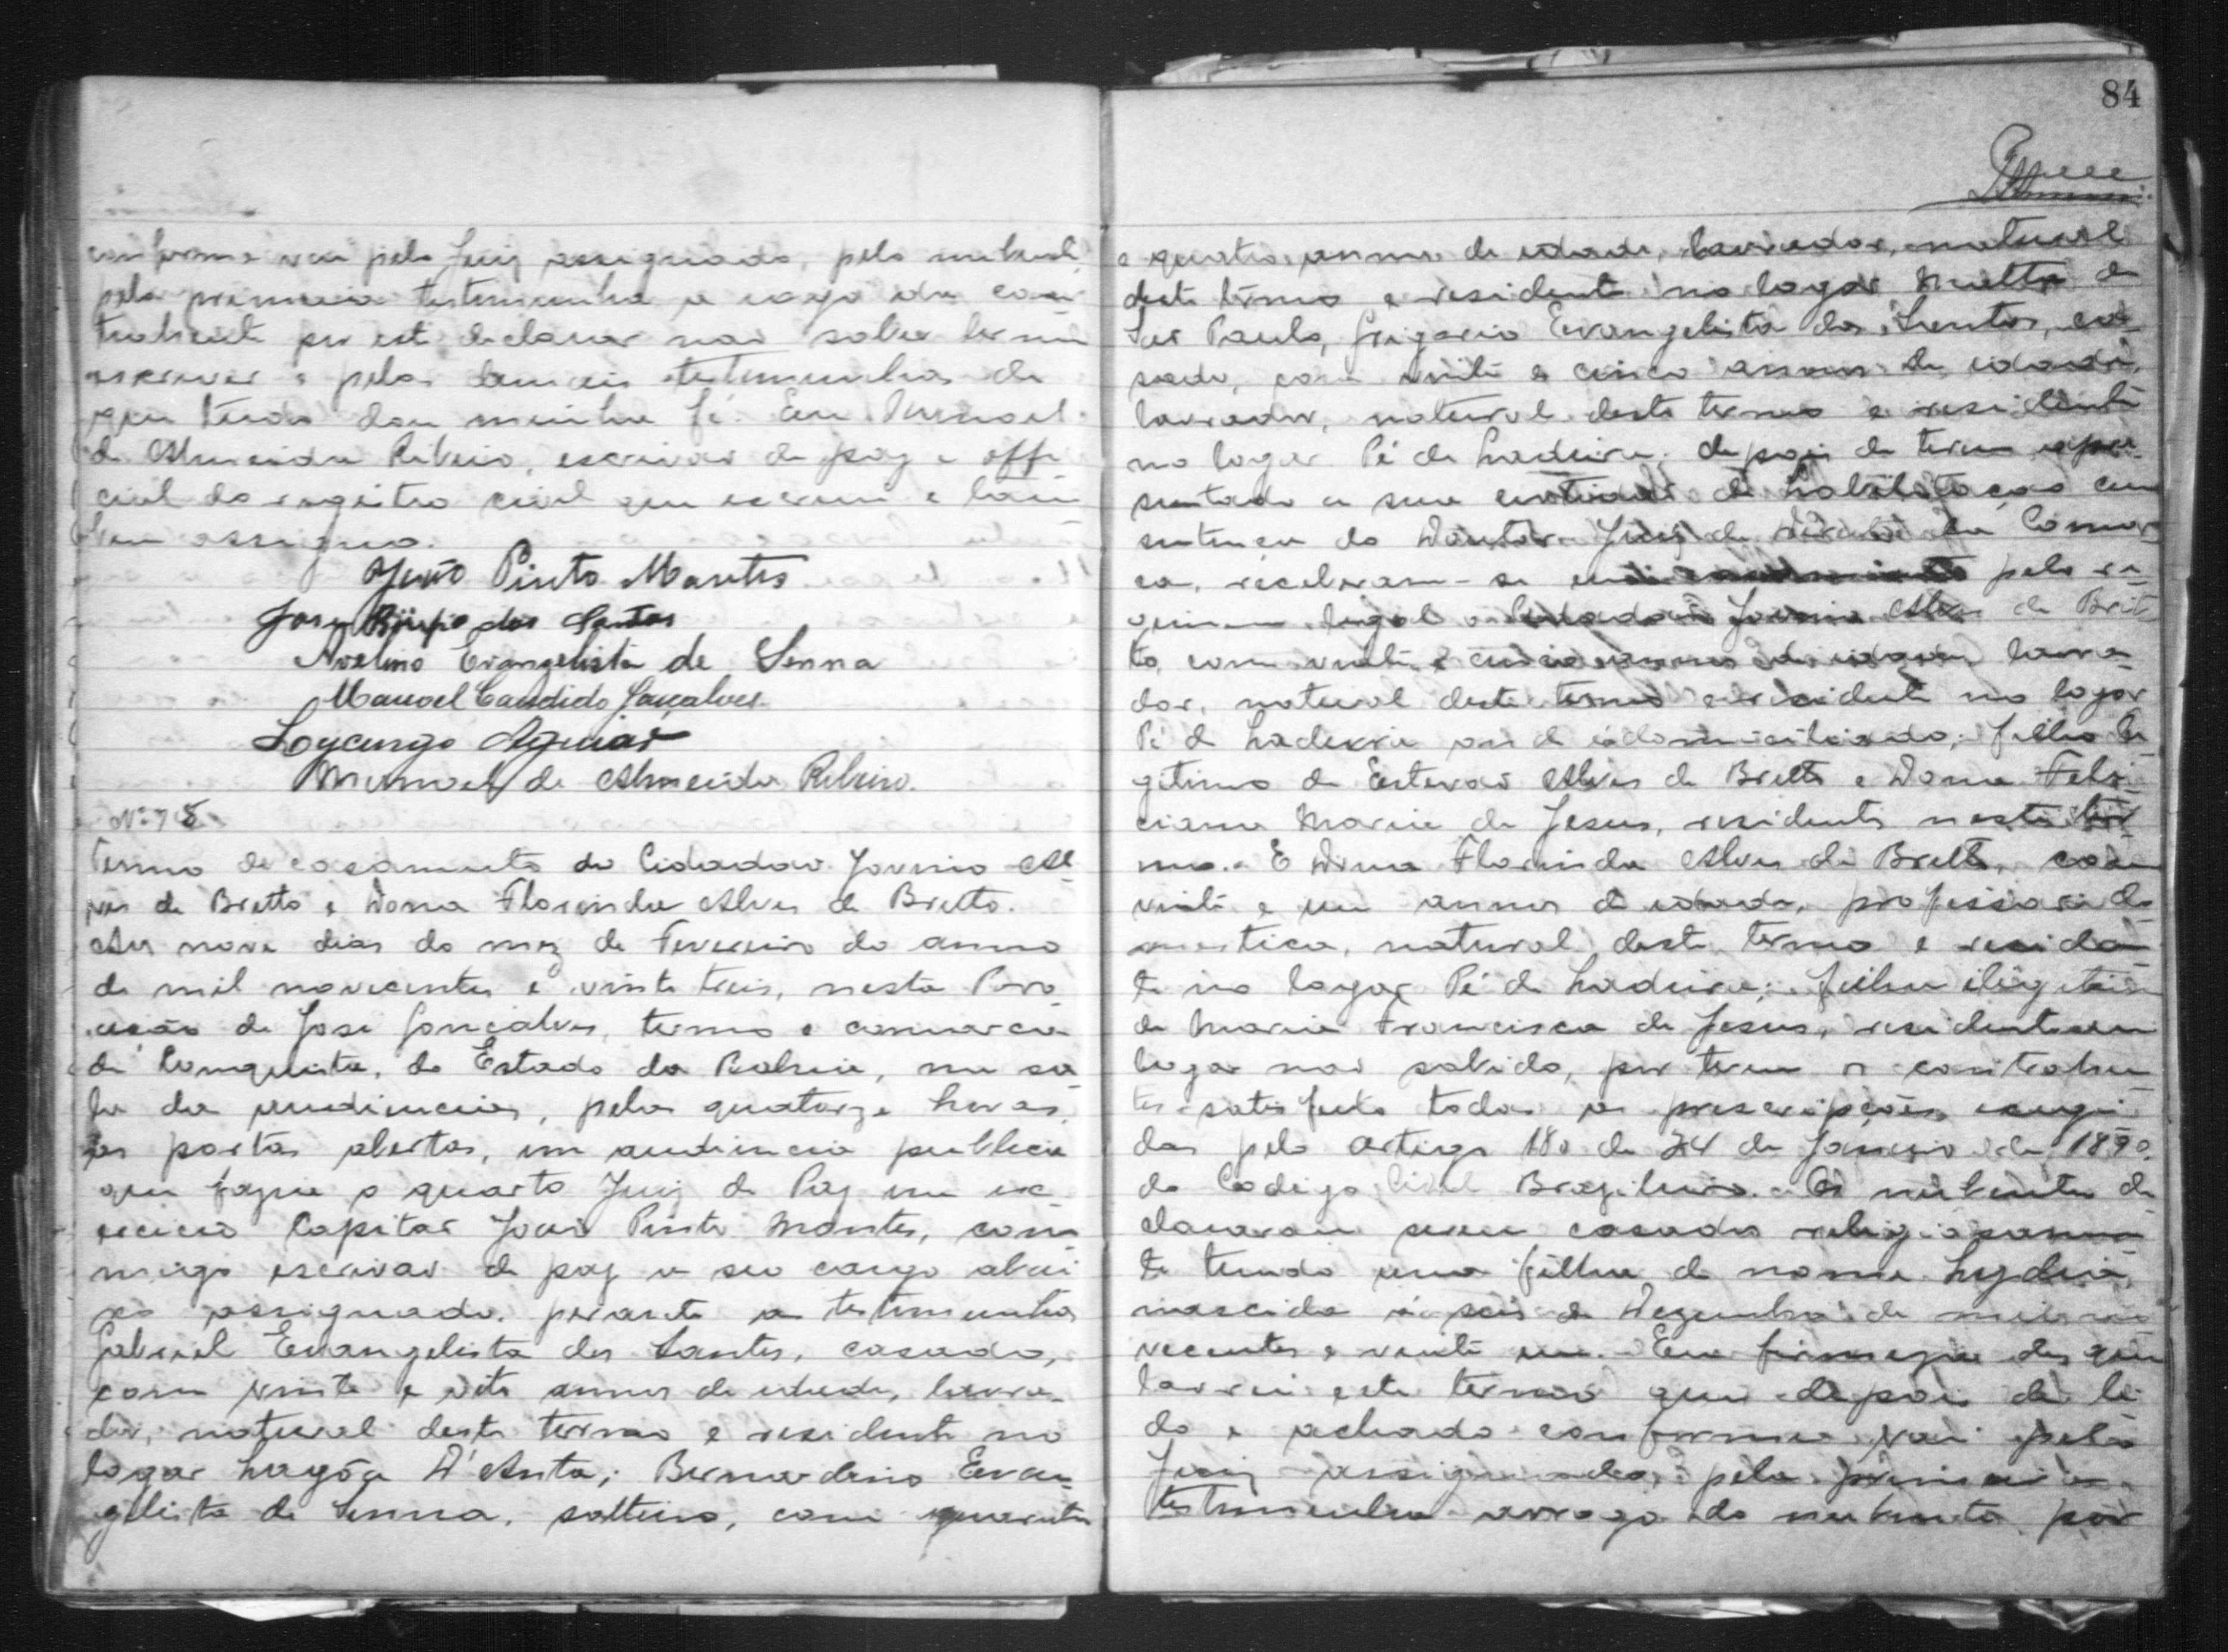 conforme vai pelo Juiz assignado, pelo nubente
pela primeira testemunha a rogo da con
trahente por esta declarar não saber ler nem
escrever e pelas demais testemunhas do
que tudo dou minha fé. Eu Manoel
de Almeida Ribeiro, escrivão de paz e offi
cial do registro civil que escrevi e tam
bem assigno.
João Pinto Montes
José dos Santos
Avelino Evangelista de Senna
Manoel Candido Gonçalves
Lycurgo Aguiar
Manoel de Almeida Ribeiro.
Nº 78
Termo de casamento do Cidadão Jovino Al
ves de Britto e Dona Florinda Alves de Britto.
Aos nove dias do mez de Fevereiro do anno
de mil novecentos e vinte treis, nesta Povo
ação de José Gonçalves, termo e commarca
de Conquista, do Estado da Bahia, na sa
la das audiencias, pelas quatorze horas,
as portas abertas, em audiencia publica
que fazia o quarto Juiz de Paz em ex
ercicio Capitão João Pinto Montes, com
migo escrivão de paz a seo cargo abai
xo assignado. perante as testemunhas
Gabriel Evangelista dos Santos, casado,
com vinte e oito annos de idade, lavra
dor, natural deste termo e residente no
logar Lagôa D'Anta; Bernardino Evan
gelista de Senna, solteiro, com quarenta
84
e quatro annos de idade, lavrador, natural
deste têrmo e residente no logar Matta de
São Paulo, Grigorio Evangelista dos Santos, ca
sado, com vinte e cinco annos de idade,
lavrador, natural deste termo e residente
no logar Pé da Ladeira; depois de terem apre
sentado a sua certidão de habilitação com
sentença do Doutor Juiz de Direito da Comar
ca, receberam-se em casamento pelo re
gimen legal o Cidadão Jovino Alves de Brit
to, com vinte e cinco annos de idade, lavra
dor, natural deste termo e residente no logar
Pé da Ladeira onde é domiciliado; filho le
gitimo de Estevão Alves de Britto e Dona Feli
ciana Maria de Jesus, residentes neste ter
mo. E Dona Florinda Alves de Britto, com
vinte e um annos de idade, profissão do
mestica, natural deste termo e residen
te no logar Pé da Ladeira; filha ilegitima
de Maria Francisca de Jesus, residente em
logar não sabido, por terem os contrahen
tes satisfeito todas as prescripções exigi
das pelo artigo 180 de 24 de Janeiro de 1890.
do Codigo Civil Brazileiro. Os nubentes de
clararam serem casados religiosamen
te tendo uma filha de nome Lydia,
nascida á seis de Dezembro de mil no
vecentos e vinte um. Em firmeza do que
lavrei este termo que depois de li
do e achado conforme vai pelo
Juiz assignado, pela primeira
testemunha arrogo do nubente por